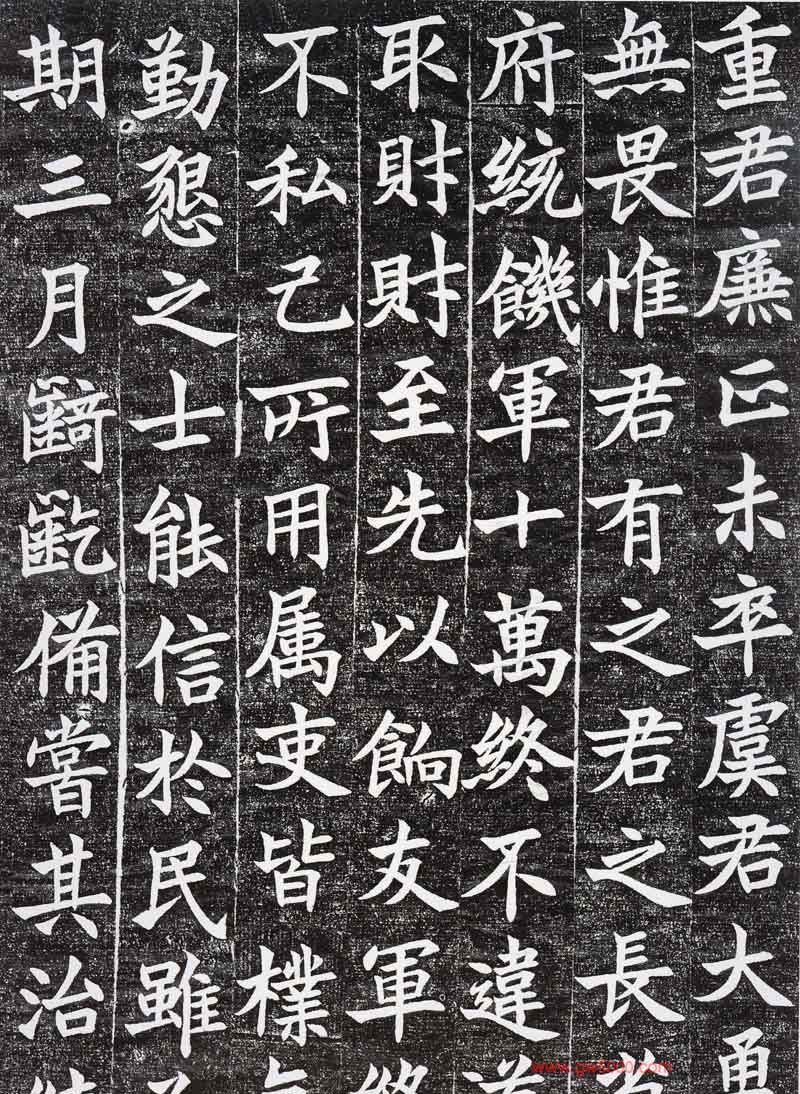 重君廉正未卒虞君大勇
無畏惟君有之君之長
府統饑軍十萬終不違
取財財至先以餉友軍
不私己所用属吏皆樸
勤懇之士能信於民雖
期三月齮齕備嘗其治